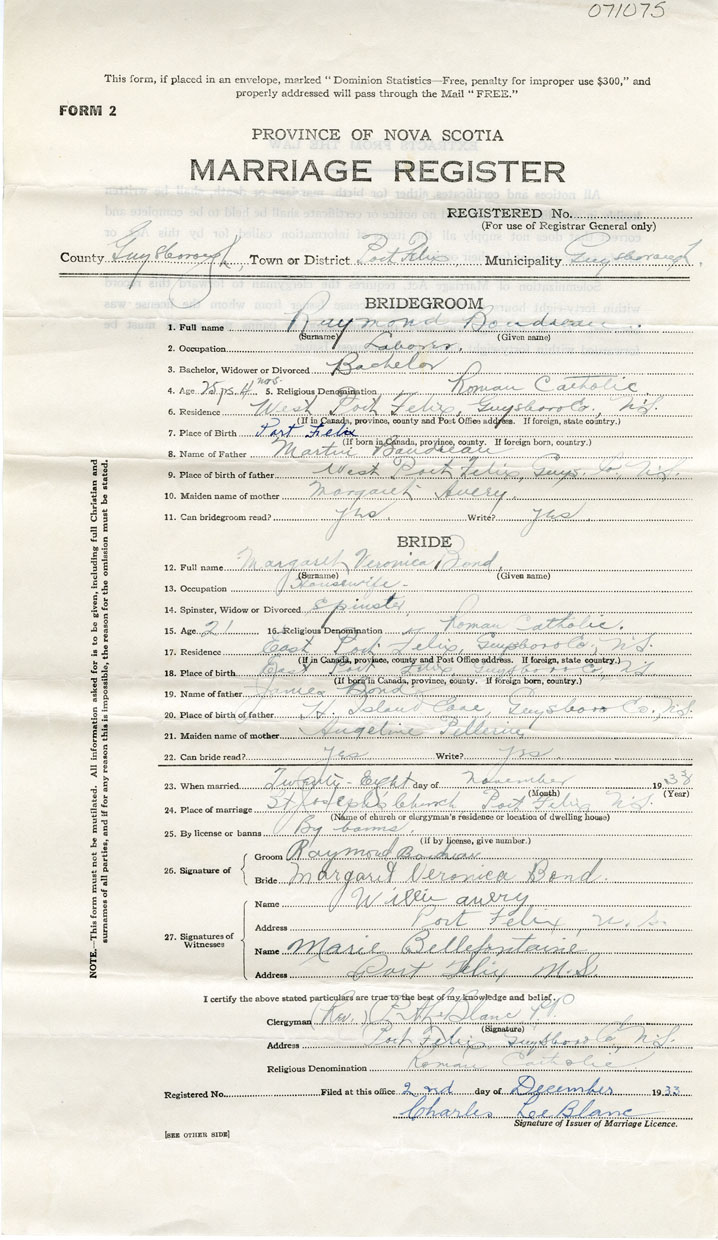 071075
This form, if placed in an envelope, marked "Dominion Statistics—Free, penalty for improper use $300," and
properly addressed will pass through the Mail "FREE."
FORM 2
PROVINCE OF NOVA SCOTIA
MARRIAGE REGISTER
REGISTERED No.
(For use of Registrar General only)
County Guysborough, Town or District Port Felix Municipality Guysborough.
BRIDEGROOM
1. Full name Raymond Boudreau.
(Surname) (Given name)
2. Occupation Laborer.
3. Bachelor, Widower or Divorced Bachelor
4. Age 25 yrs. 4 mos. 5. Religious Denomination Roman Catholic
6. Residence West Port Felix, Guysboro Co., N.S.
(If in Canada, province, county and Post Office address. If foreign, state country.)
7. Place of Birth Port Felix
(If born in Canada, province, county. If foreign born, country.)
8. Name of Father Martin Boudreau
9. Place of birth of father West Port Felix, Guys. Co., N.S.
10. Maiden name of mother Margaret Avery.
11. Can bridegroom read? yes Write? yes
BRIDE
12. Full name Margaret Veronica Bond,
(Surname) (Given name)
13. Occupation Housewife.
14. Spinster, Widow or Divorced Spinster,
15. Age 21 16. Religious Denomination Roman Catholic.
17. Residence East Port Felix, Guysboro Co., N.S.
(If in Canada, province, county and Post Office address. If foreign, state country.)
18. Place of birth East Port Felix Guysboro Co., N.S
(If born in Canada, province, county. If foreign born, country.)
19. Name of father James Bond
20. Place of birth of father Island Cove, Guysboro Co., N.S.
21. Maiden name of mother Angeline
22. Can bride read? Yes Write? Yes.
23. When married Twenty-Eight day of November 1933
(Month) (Year)
24. Place of marriage St Joseph's Church Port Felix N.S.
(Name of church or clergyman's residence or location of dwelling house)
25. By license or banns By banns.
(If by license, give number.)
26. Signature of Groom Raymond Boudreau
Bride Margaret Veronica Bond.
27. Signatures of Witnesses
Name Willie avery
Address Port Felix, N.S.
Name Marie Bellefontaine
Address Port Felix N.S.
I certify the above stated particulars are true to the best of my knowledge and belief.
Clergyman (Rev.) LeBlanc P.P.
(Signature)
Address Port Felix, Guysboro Co, N.S.
Religious Denomination Roman Catholic
Registered No. Filed at this office 2nd day of December 1933
Charles LeBlanc
Signature of Issuer of Marriage Licence.
[SEE OTHER SIDE]
NOTE.—This form must not be mutilated. All information asked for is to be given, including full Christian and
surnames of all parties, and if for any reason this is impossible, the reason for the omission must be stated.